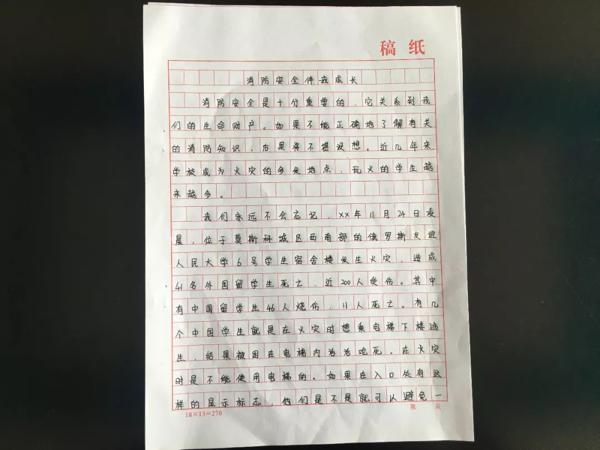 稿 纸
消防安全伴我成长
消防安全是十分重要的，它关系到我
们的生命财产。如果不能正确地了解有关
的消防知识，后果将不堪设想。近几年来
学校成为火灾的多发地点，玩火的学生越
来越多。
我们永远不会忘记，××年11月24日凌
晨，位于莫斯科城区西南部的俄罗斯友谊
人民大学6号学生宿舍楼发生火灾，造成
41名外国留学生死亡，近200人受伤。其中
有中国留学生46人烧伤，11人死亡。有几
个中国学生就是在火灾时想乘电梯下楼逃
生，结果被困在电梯内活活呛死。在火灾
时是不能使用电梯的。如果在入口处有这
样的显示标志，他们是不是就可以避免一
18×15=270